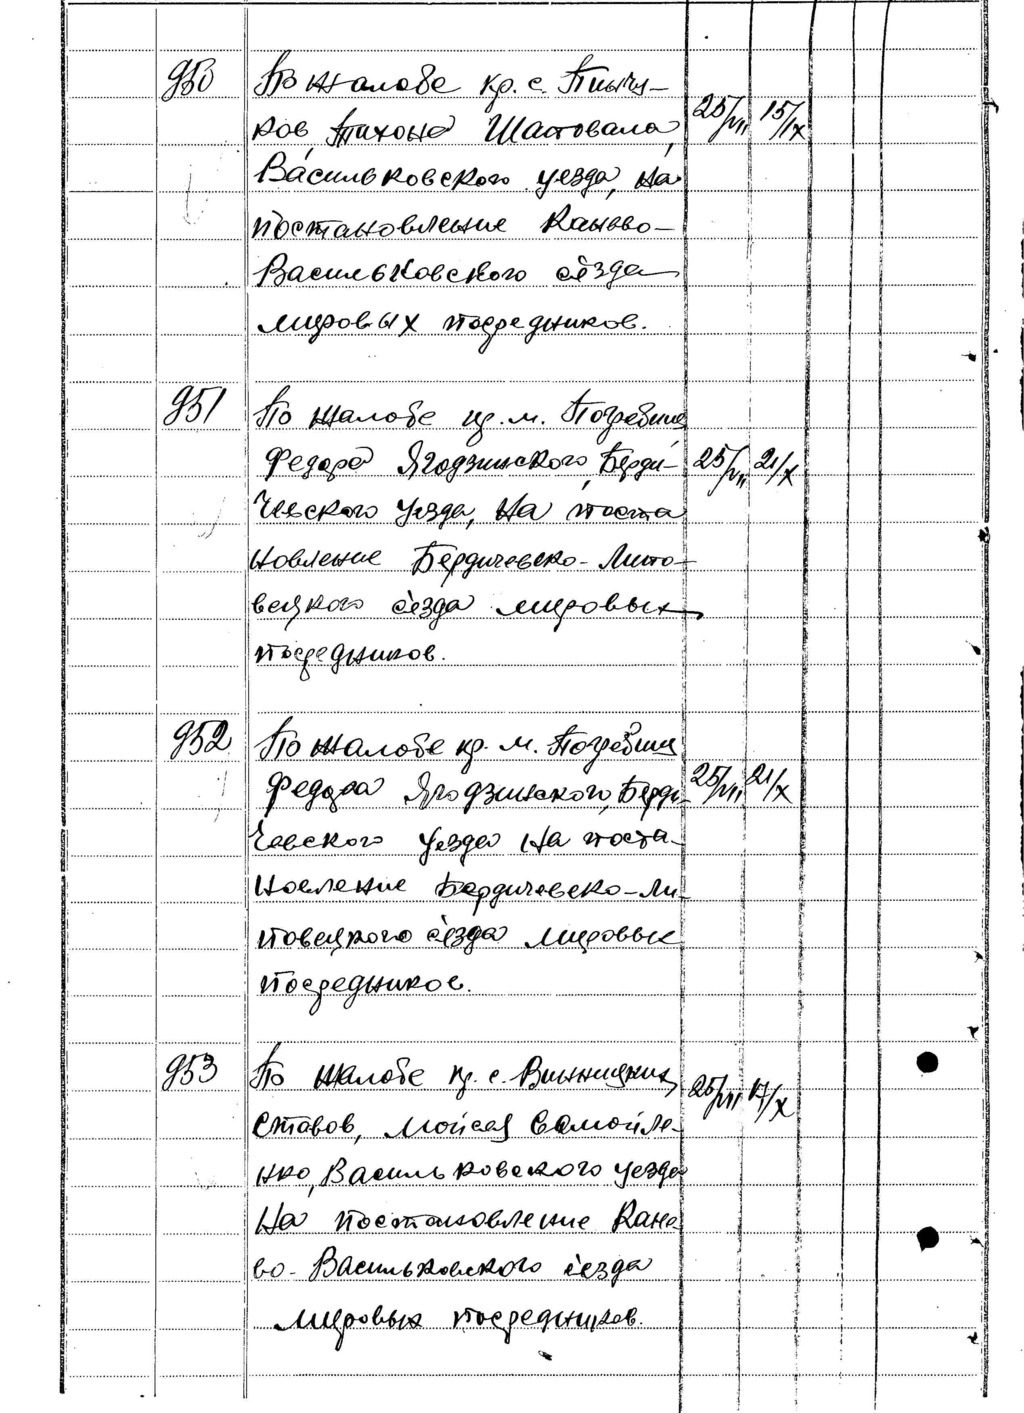 950 По жалобе кр. с. Пинчу-
ков, Тихона Шаповала, 25/VII 15/IX
Васильковского уезда, на
постановление Канево-
Васильковского съезда
мировых посредников.
951 По жалобе кр. м. Погребищ
Федора Ягодзинского, Берди- 25/VII 21/X
чевского уезда, на поста
новление Бердичевско-Липо-
вецкого съезда мировых
посредников.
952 По жалобе кр. м. Погребищ
Федора Ягодзинского, Берди- 25/VII 21/X
чевского уезда на поста-
новление Бердичевско-Ли-
повецкого съезда мировых
посредников.
953 По жалобе кр. с. Винницких
Ставов, Мойсея Самойле- 25/VII 17/X
нко, Васильковского уезда
на постановление Кане
во-Васильковского съезда
мировых посредников.